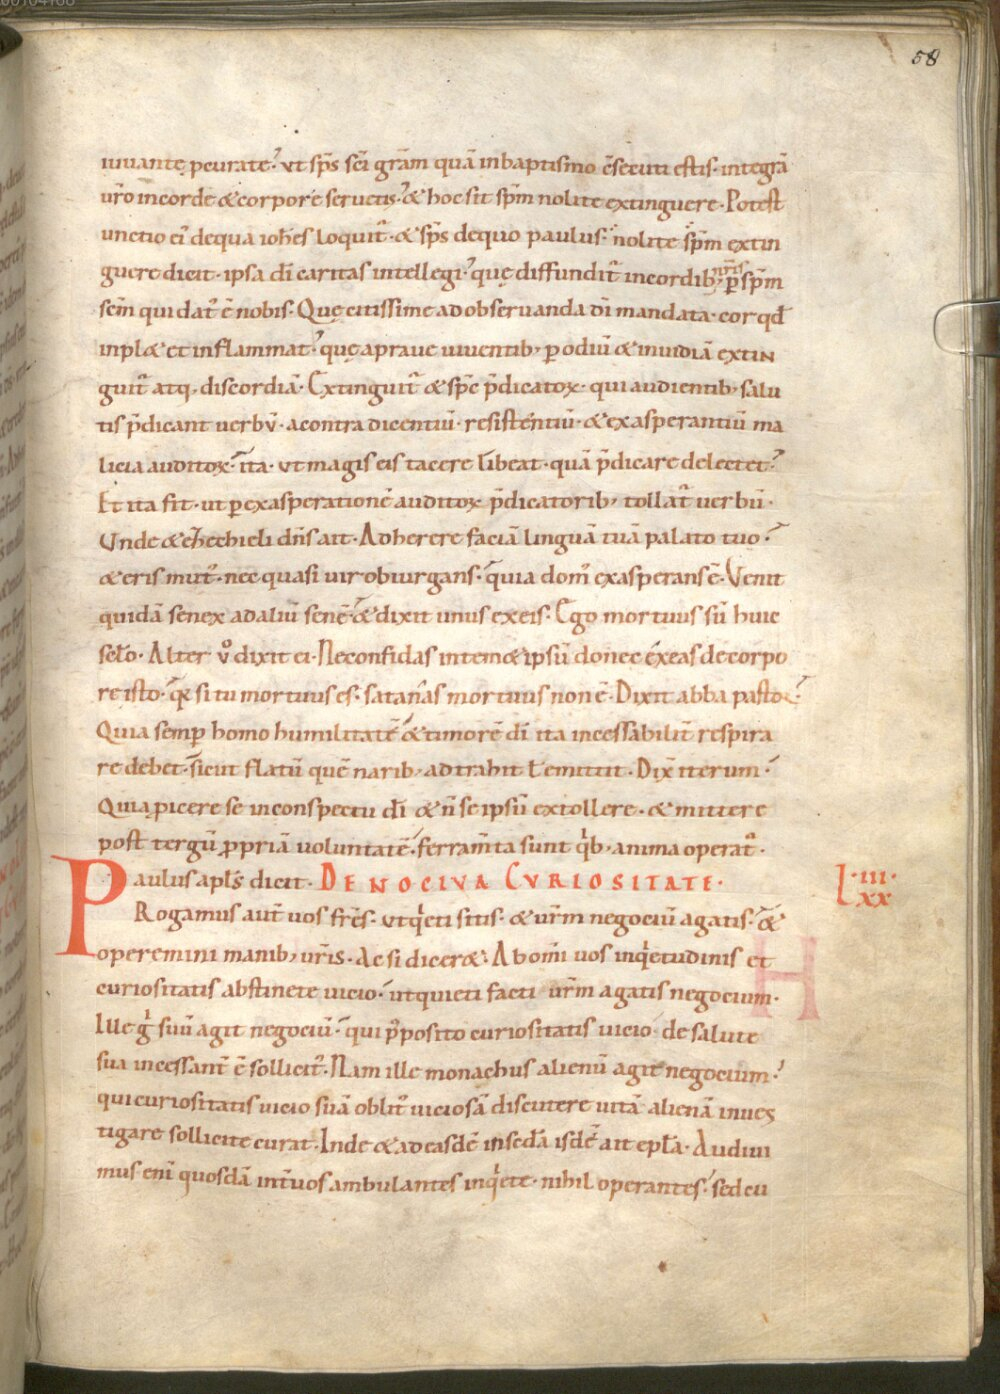 58
iuuante peurate? ut sp̄s sc̄i grām quā inbaptismo c̄secuti estis· integrā
ur̄o incorde &corpore seruetis? & hoc sit sp̄m nolite extinguere· Potest
unctio ei᷒ dequa ioh̄es loquit᷒· & sp̄s dequo paulus· nolite sp̄m extin
guere dicit· ipsa dī caritas intellegi? quę diffundit᷒ incordib; ur̄is p̄ sp̄m
sc̄m qui dat᷒ ē nobis· Quę citissime adobseruanda dī mandata· cor qđ
inpl& et inflammat? quę apraue uiuentib; p odiū & inuidiā extin
guit᷒ atq; discordiā· Extinguit᷒ & spc̄ p̄dicatoꝝ· qui audientib; salu
tis p̄dicant uerbū· acontra dicentiū· resistentiū· & exasperantiū ma
licia auditoꝝ· ita· ut magis eis tacere libeat· quā p̄dicare delectet?
Et ita fit· ut ꝑexasperationē auditoꝝ p̄dicatorib; tollat᷒ uerbū·
Unde & ezechieli dn̄s ait· Adherere faciā linguā tuā palato tuo?
& eris mut᷒· nec quasi uir obiurgans· quia dom᷒ exasperans ē· Venit
quidā senex adaliū senē· & dixit unus exeis· Ego mortuus sū huic
scło· Alter ů dixit ei· Ne confidas intem&ipsū donec exeas decorpo
re isto· qꝛ si tu mortuus es· satanas mortuus non ē· Dixit abba pastor?
Quia semꝑ homo humilitatē & timorē dī ita incessabilit᷒ respira
re debet· sicut flatū quē narib; adtrahit ł emittit· Dix̄ iterum?
Quia ꝓicere se inconspectu dī & n̄ se ipsū extollere· & mittere
post tergū ꝓpriā uoluntatē· ferram̄ta sunt qͥb; anima operat᷒·
Paulus apłs dicit· DE NOCIVA CVRIOSITATE· L·III· XX
Rogamus aut̄ uos fr̄es· utqͥeti sitis· & ur̄m negociū agatis· &
operemini manib; ur̄is· Ac si dicer&· Abomī uos inqͥetudinis et
curiositatis abstinete uicio· utquieti facti ur̄m agatis negocium· H
Ille gͥ suū agit negociū· qui p̄posito curiositatis uicio· de salute
sua incessant᷒ ē sollicit᷒· Nam ille monachus alienū agit negocium?
qui curiositatis uicio suā oblit᷒ uiciosā discutere uitā alienā inues
tigare sollicite curat· Inde & adeasdē insed̄a isdē ait epła· Audiui
mus enī quosdā int᷒uos ambulantes inqͥete· nihil operantes· sed cu